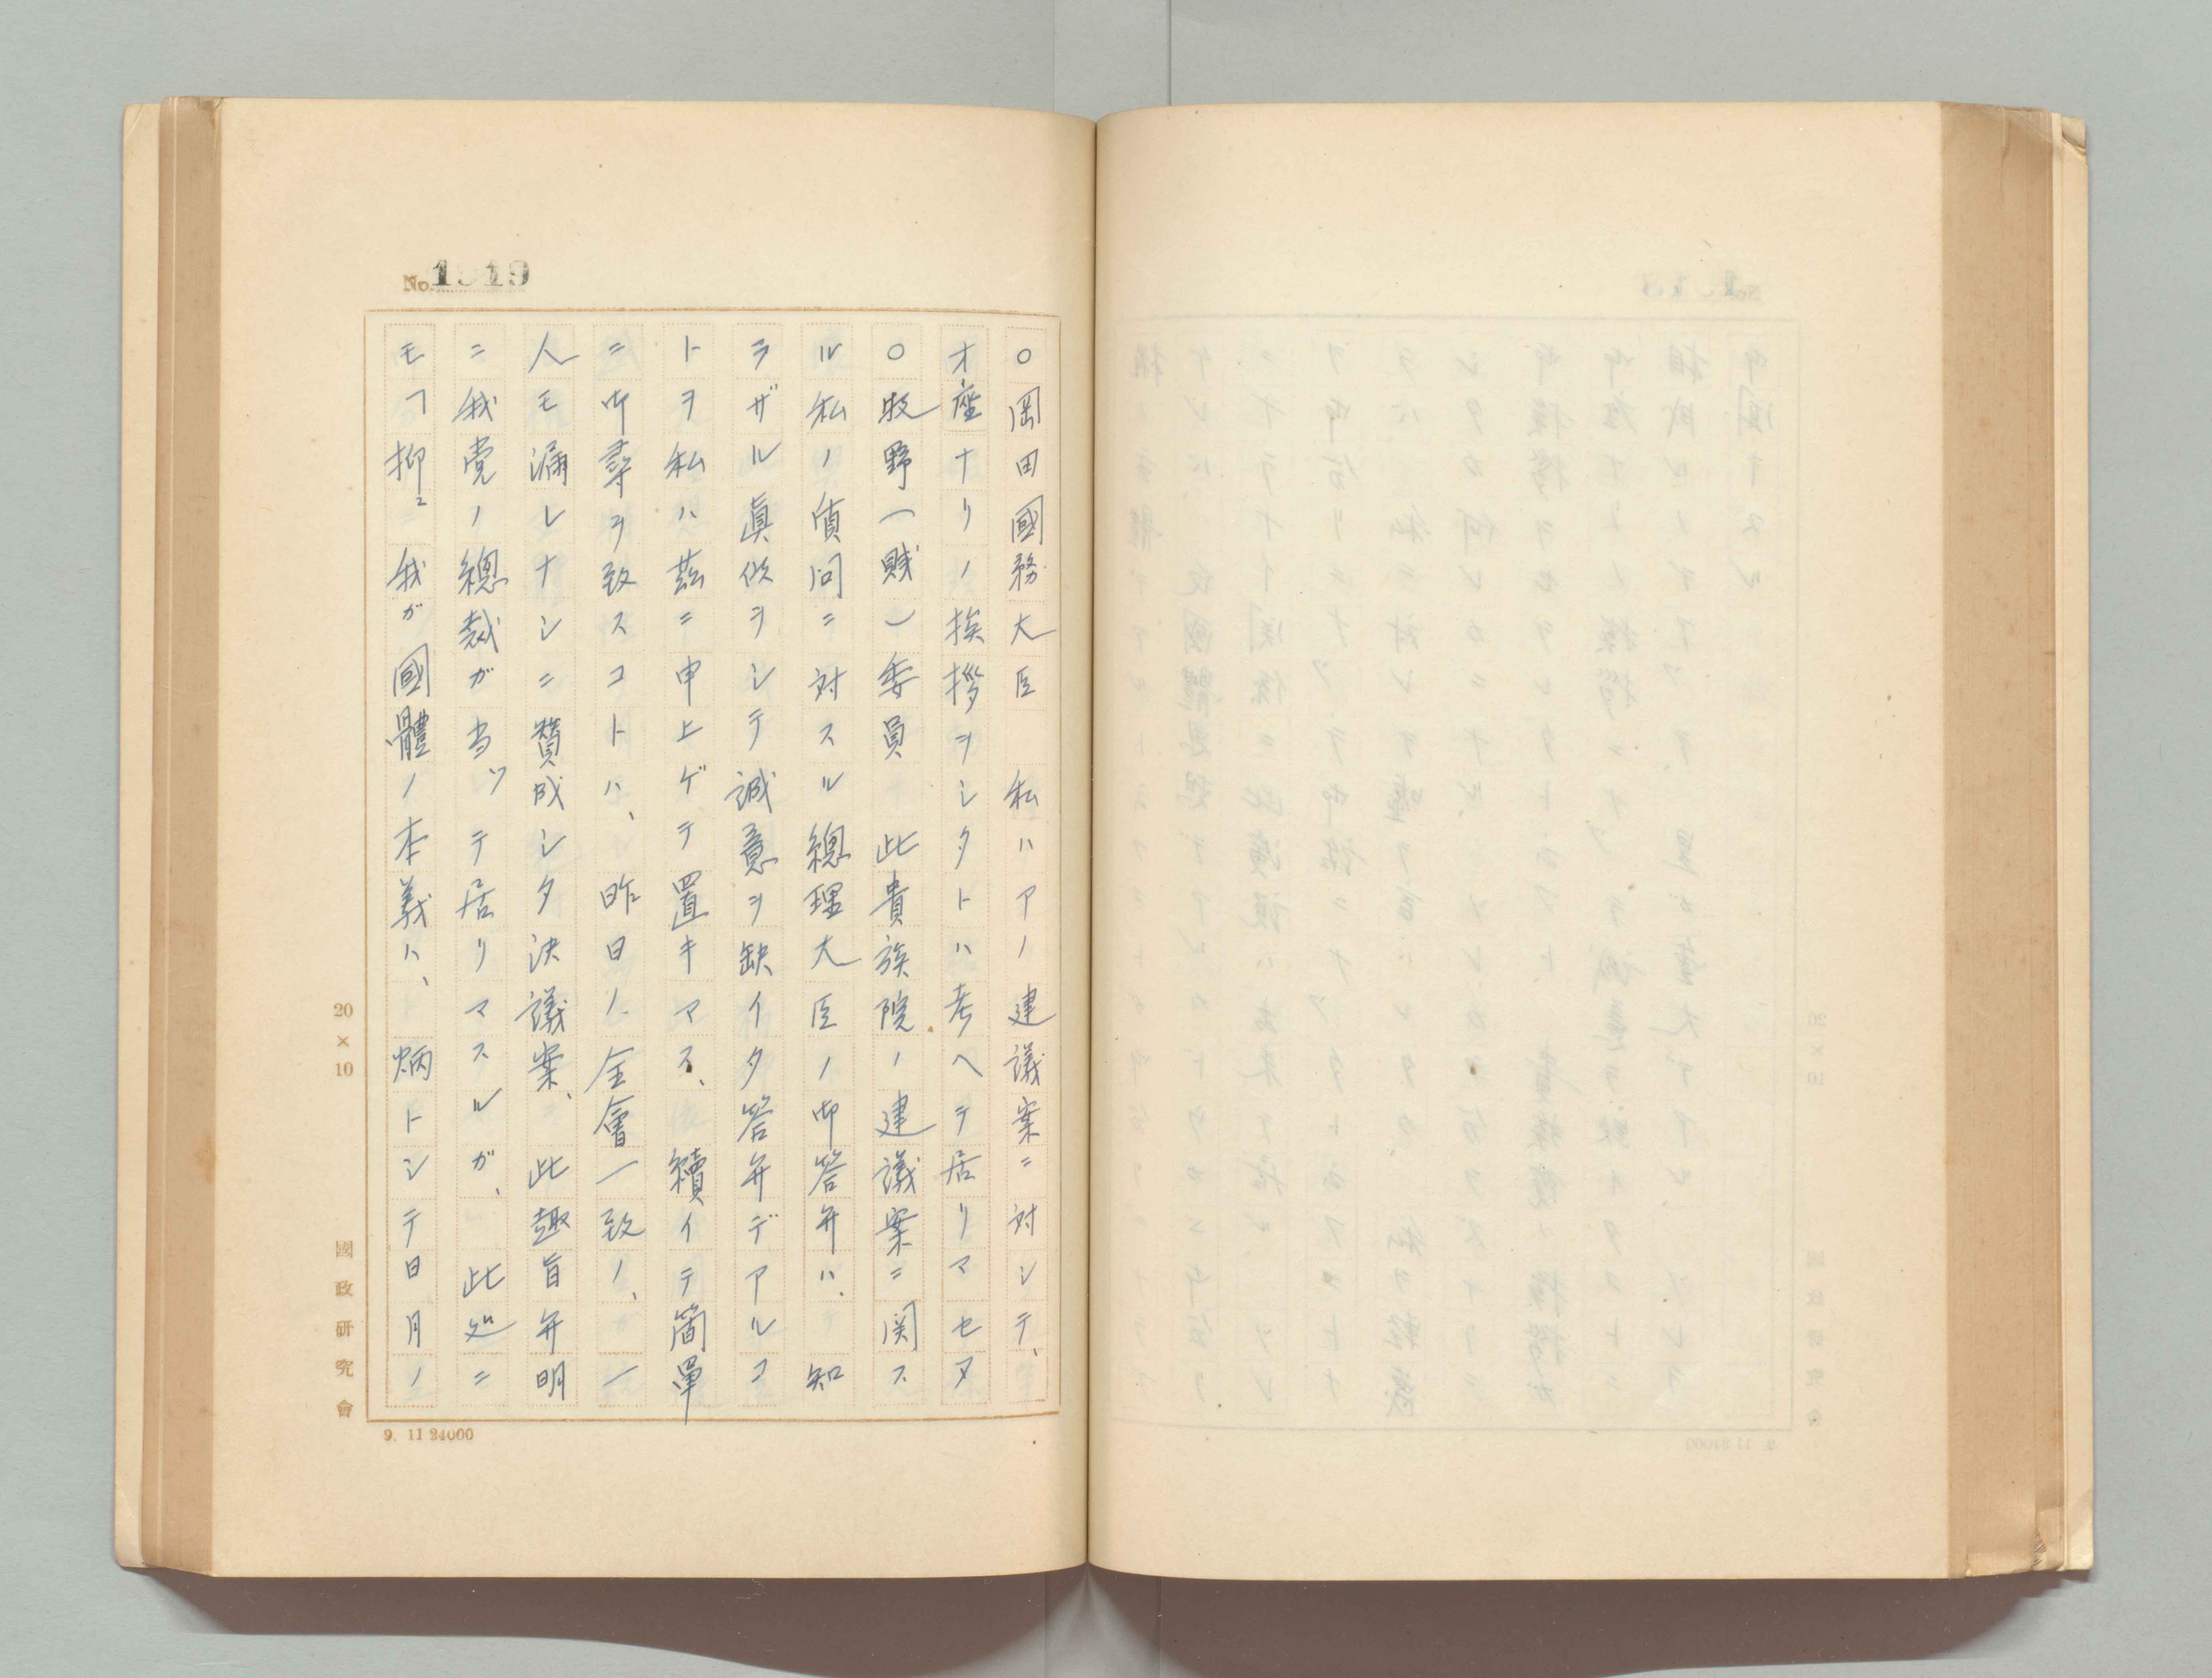 No. 1919
○岡田國務大臣　私ハアノ建議案ニ対シテ、
オ座ナリノ挨拶ヲシタトハ考ヘテ居リマセヌ
○牧野(賤)委員　此貴族院ノ建議案ニ関ス
ル私ノ質問ニ対スル總理大臣ノ御答弁ハ、知
ラザル眞似ヲシテ誠意ヲ缺イタ答弁デアルコ
トヲ私ハ茲ニ申上ゲテ置キマス、續イテ箇單
ニ御尋ヲ致スコトハ、昨日ノ全會一致ノ、一
人モ漏レナシニ賛成シタ決議案、此趣旨弁明
ニ我党ノ總裁ガ当ッテ居リマスルガ、此処ニ
モ「抑ミ我ガ國體ノ本義ハ、炳トシテ日月ノ
20×10
國政研究會
9. 11 24000